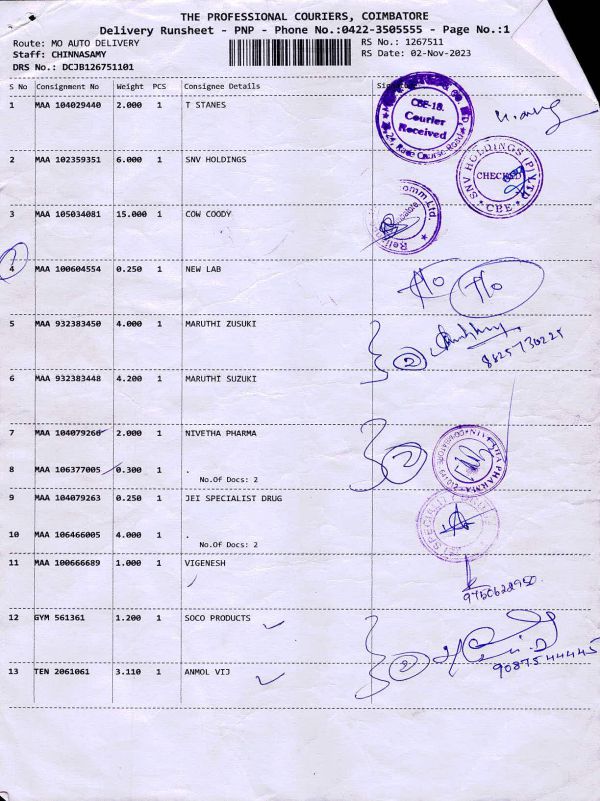 THE PROFESSIONAL COURIERS, COIMBATORE
Delivery Runsheet - PNP - Phone No.:0422-3505555 - Page No.:1
Route: MO AUTO DELIVERY
RS No.: 1267511
Staff: CHINNASAMY
RS Date: 02-Nov-2023
DRS No.: DCJB126751101
S No Consignment No Weight PCS Consignee Details
1 MAA 104029440 2.000 1 T STANES
CBE-18.
Courier
Received
24, Race Course Road
2 MAA 102359351 6.000 1 SNV HOLDINGS
SNV HOLDINGS (P) LTD
CHECKED
CBE
3 MAA 105034081 15.000 1 COW COODY
Comm Ltd.
4 MAA 100604554 0.250 1 NEW LAB
5 MAA 932383450 4.000 1 MARUTHI ZUSUKI
2
6 MAA 932383448 4.200 1 MARUTHI SUZUKI
7 MAA 104079266 2.000 1 NIVETHA PHARMA
2
PHARMA
8 MAA 106377005 0.300 1 .
No.Of Docs: 2
9 MAA 104079263 0.250 1 JEI SPECIALIST DRUG
10 MAA 106466005 4.000 1 .
No.Of Docs: 2
11 MAA 100666689 1.000 1 VIGENESH
12 GYM 561361 1.200 1 SOCO PRODUCTS
2
9087544445
13 TEN 2061061 3.110 1 ANMOL VIJ